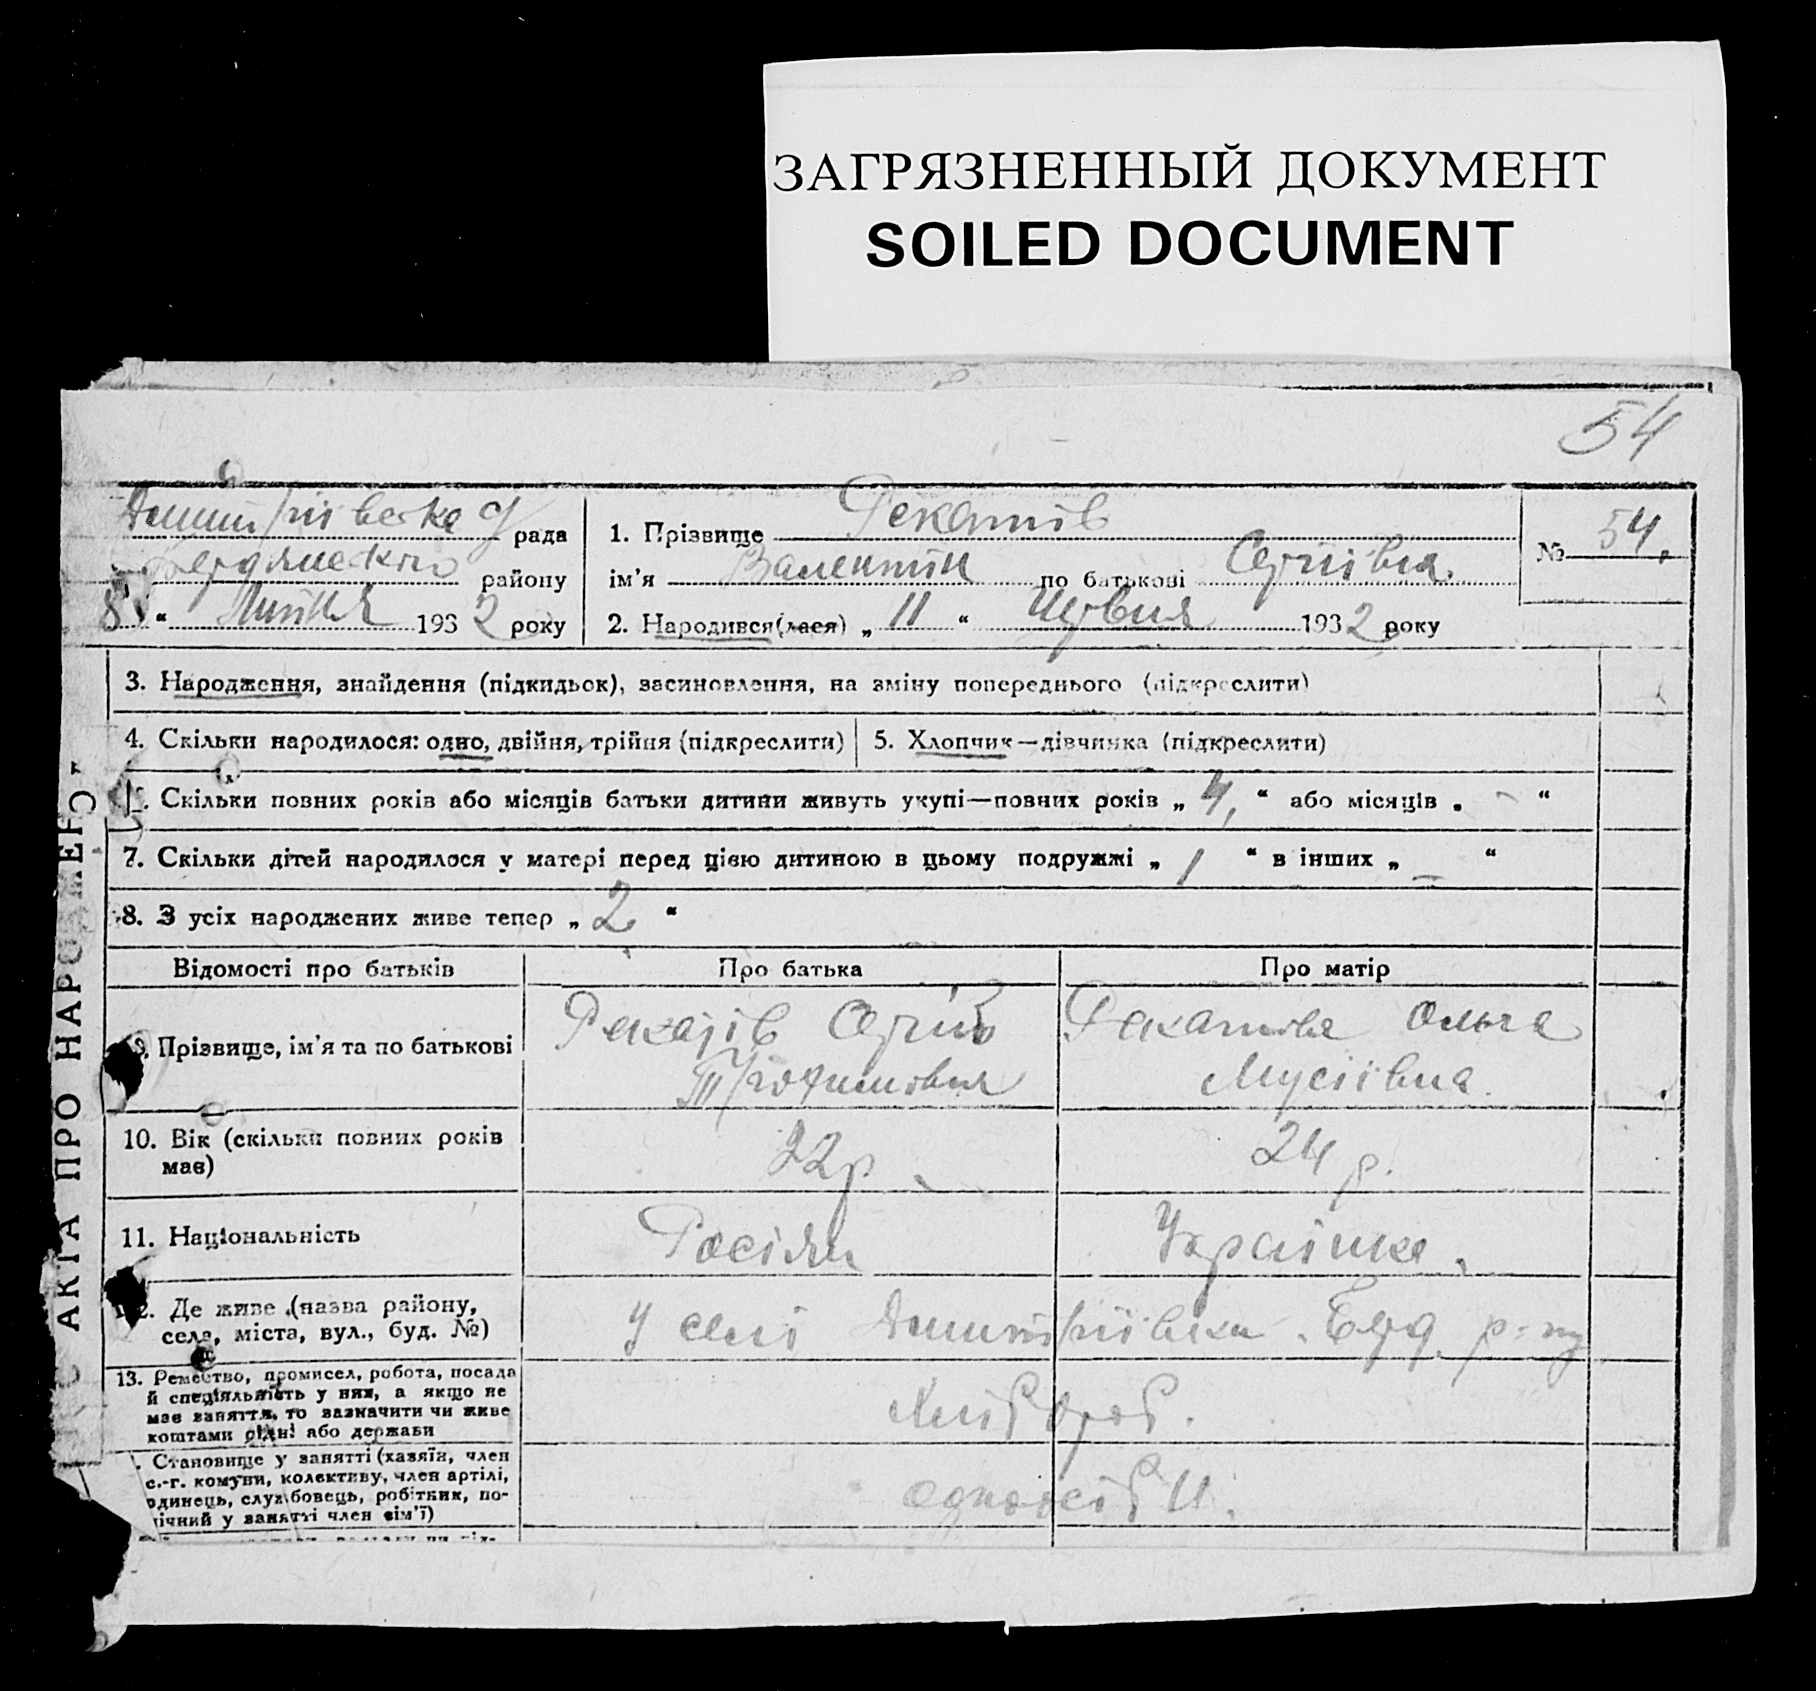 ЗАГРЯЗНЕННЫЙ ДОКУМЕНТ
SOILED DOCUMENT
54
Дмитрівська рада
Бердянського району
8 “ Липня 1932 року
1. Прізвище Рекатів
ім’я Валентин по батькові Сергіївич
2. Народився(лася) „ 11 “ Червня 1932 року
№ 54.
АКТА ПРО НАРОДЖЕН
3. Народження, знайдення (підкидьок), засиновлення, на зміну попереднього (підкреслити)
4. Скільки народилося: одно, двійня, трійня (підкреслити)
5. Хлопчик—дівчинка (підкреслити)
Скільки повних років або місяців батьки дитини живуть укупі—повних років „ 4, “ або місяців „ - “
7. Скільки дітей народилося у матері перед цією дитиною в цьому подружжі „ 1 “ в інших „ — “
8. З усіх народжених живе тепер „ 2 “
Відомості про батьків
Про батька
Про матір
9. Прізвище, ім’я та по батькові
Рекатів Сергій
Трохимович
Рекатова Ольга
Мусіївна
10. Вік (скільки повних років
має)
22р
24 р.
11. Національність
Росіян
Українка.
12. Де живе (назва району,
села, міста, вул., буд. №)
У селі Дмитрівки Берд. р-ну
13. Ремество, промисел, робота, посада
й спеціяльність у них, а якщо не
має заняття, то зазначити чи живе
коштами рідні або держави
Хлібороб.
Становище у занятті (хазяїн, член
с.-г. комуни, колективу, член артілі,
одинець, службовець, робітник, по-
мічний у занятті член сім’ї)